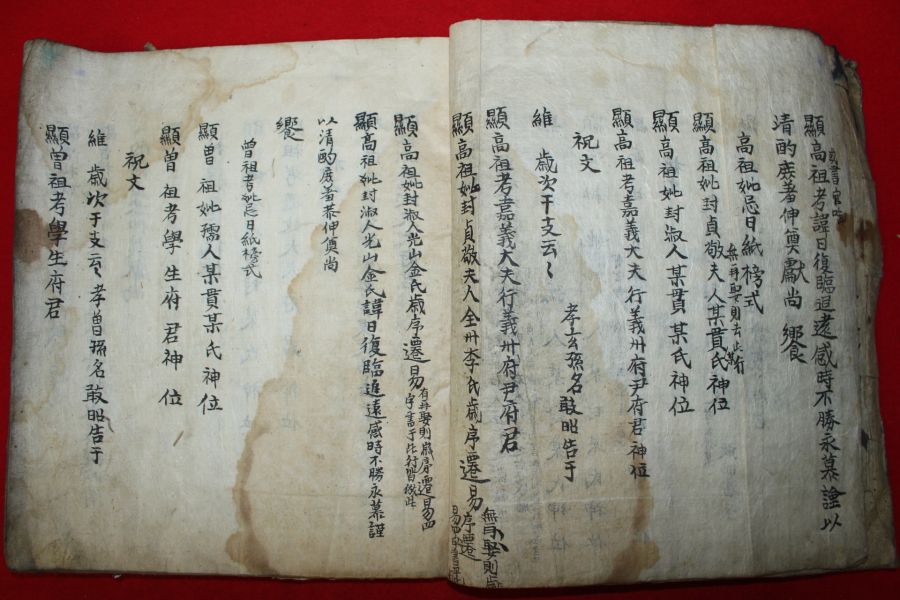 顯高祖考諱日復臨追遠感時不勝永慕謹以
淸酌庶羞伸奠獻尙 饗
高祖妣忌日紙榜式
無再娶則去此行
顯高祖妣封貞敬夫人某貫氏神位
顯高祖妣封淑人某貫某氏神位
顯高祖考嘉義大夫行義州府尹府君神位
祝文
維 歲次干支云云 孝玄孫名敢昭告于
顯高祖考嘉義大夫行義州府尹府君
顯高祖妣封貞敬夫人全州李氏歲序遷易
無再娶則歲
序遷
顯高祖妣封淑人光山金氏歲序遷易
有再娶則歲序遷易四
字書于此行皆倣此
顯高祖妣封淑人光山金氏諱日復臨追遠感時不勝永慕謹
以淸酌庶羞恭伸奠尙
饗
曾祖考妣忌日紙榜式
顯曾祖妣孺人某貫某氏神位
顯曾祖考學生府君神位
祝文
維 歲次干支云 孝曾孫名敢昭告于
顯曾祖考學生府君